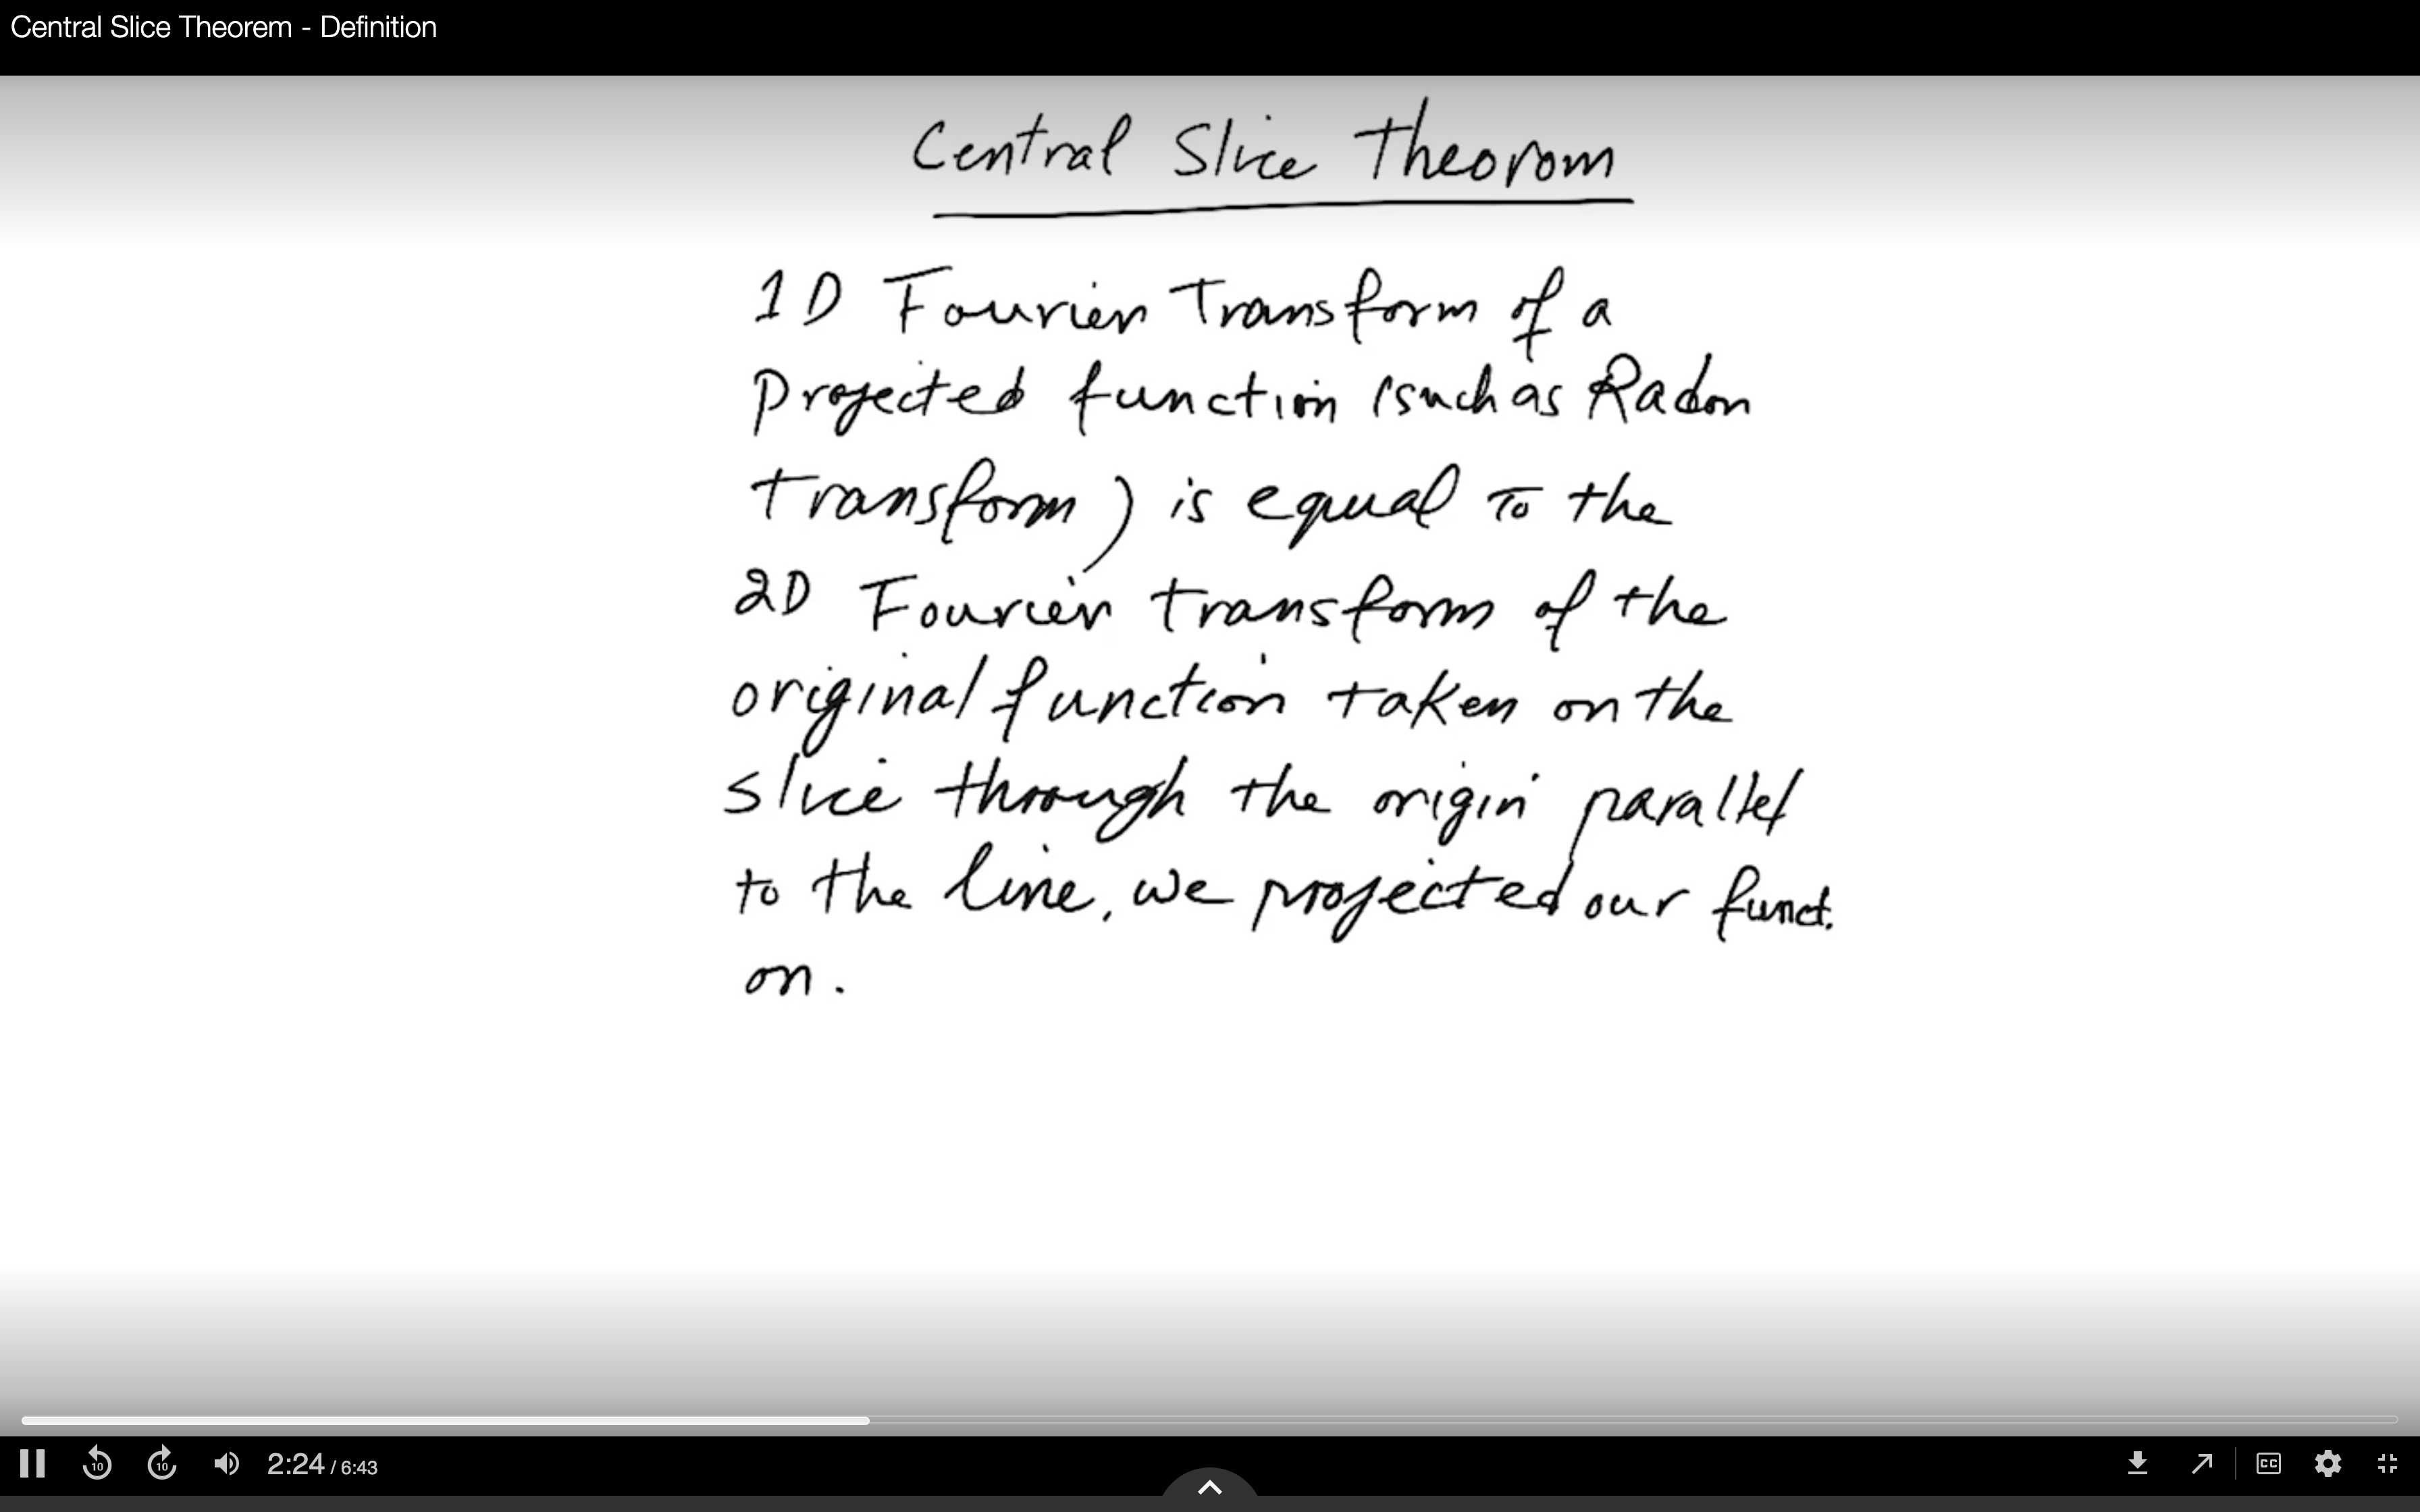 Central Slice Theorem - Definition
Central Slice Theorom
1D Fourier Transform of a
Projected function (such as Radon
transform) is equal To the
2D Fourier transform of the
original function taken on the
slice through the origin parallel
to the line, we projected our funct.
on.
10
10
2:24 / 6:43
CC